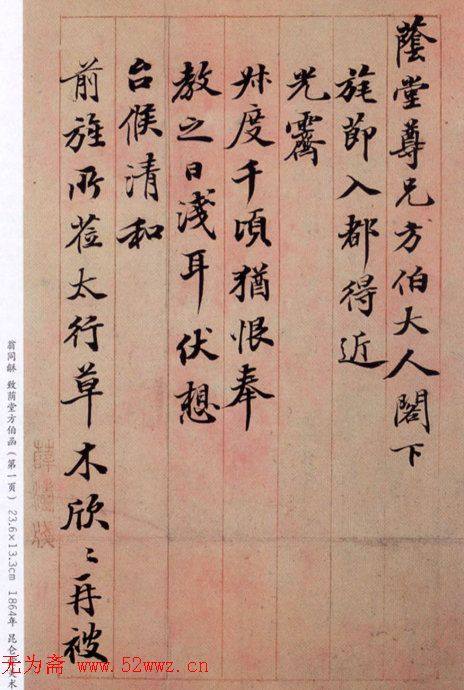 蔭堂尊兄方伯大人閣下
旄節入都得近
光霽
叔度千頃猶恨奉
教之日淺耳伏想
台候清和
前旌所蒞太行草木欣〻再被
翁同龢 致荫堂方伯函（第一页） 23.6×13.3cm 1864年 昆仑
美术
无为斋 www.52wwz.cn